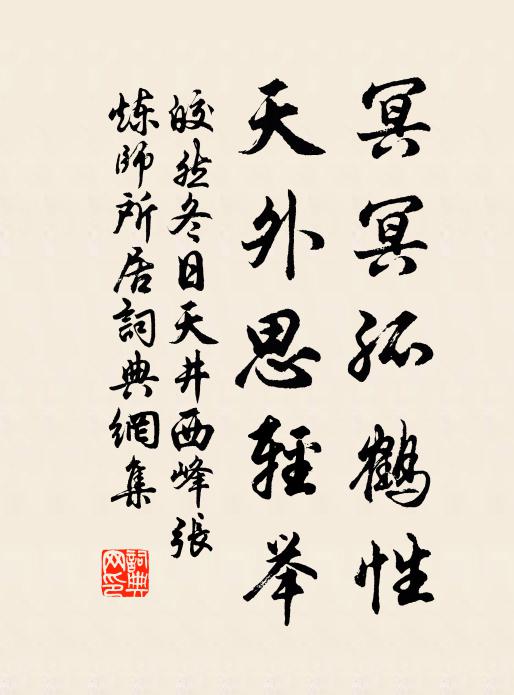 冥冥孤鹤性
天外思轻举
皎然冬日天井西峰張
炼师所居詞典網集
詞典
网印